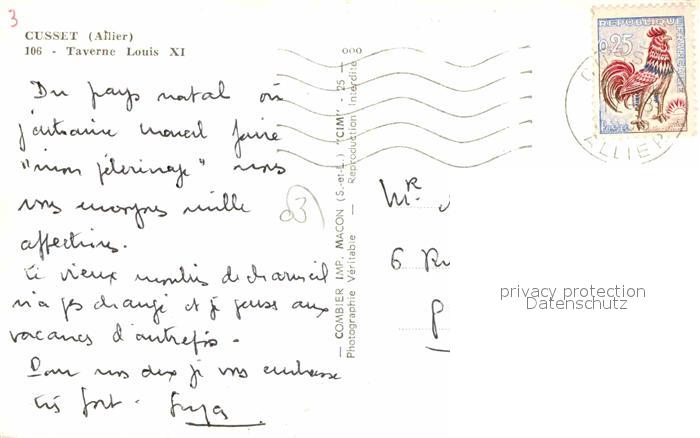 3
CUSSET (Allier)
106 - Taverne Louis XI
Du pays natal où
j'entraine Marcel faire
"mon pélerinage" nous
vous envoyons mille
affections.
Le vieux moulin de charmeil
n'a pas changé et je pense aux
vacances d'autrefois.
Pour nos deux je vous embrasse
très fort.
03
— COMBIER IMP. MACON (S.-et-L.) "CIM" - 25 — ooo
Photographie Véritable — Reproduction Interdite
REPUBLIQUE
FRANÇAISE
0,25
Postes
ALLIER
Mr
6 Ru
P
privacy protection
Datenschutz